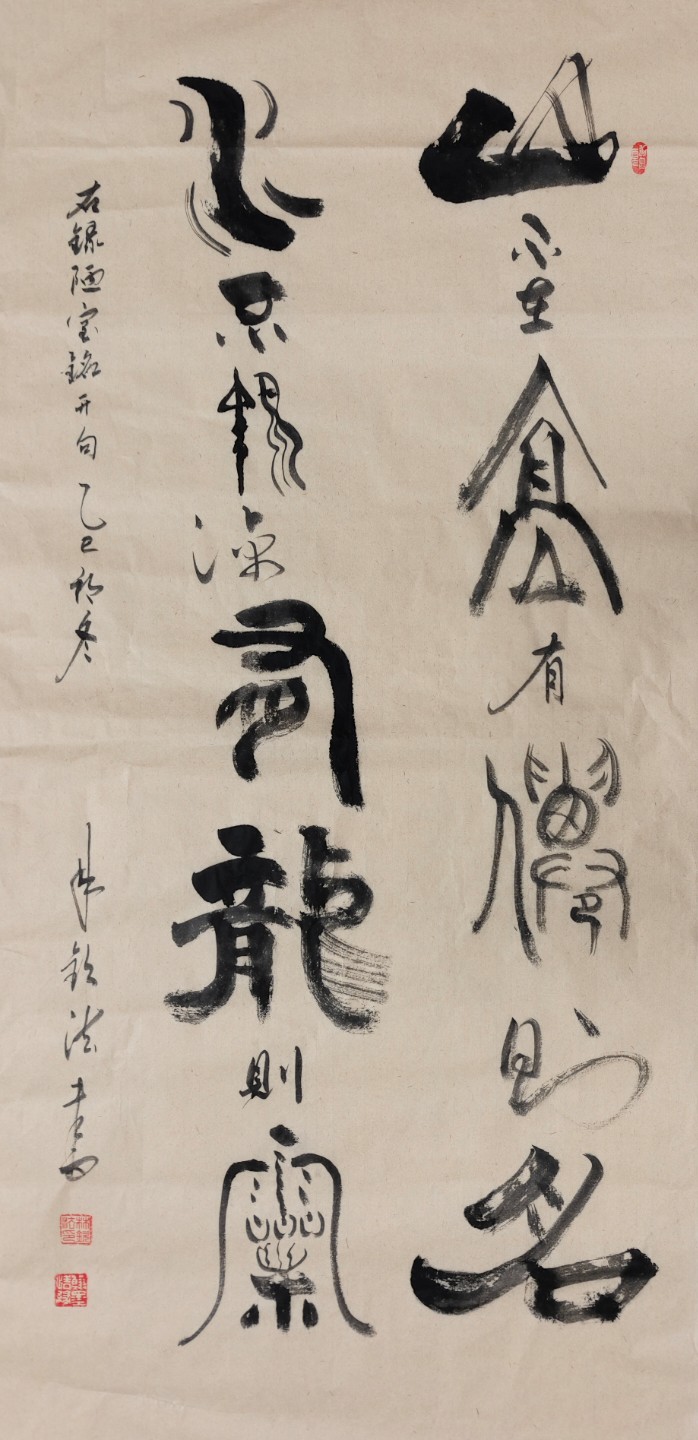 山不在高有僊則名
水不在深有龍則靈
右録陋室銘开句 乙巳初冬
朱欽法書